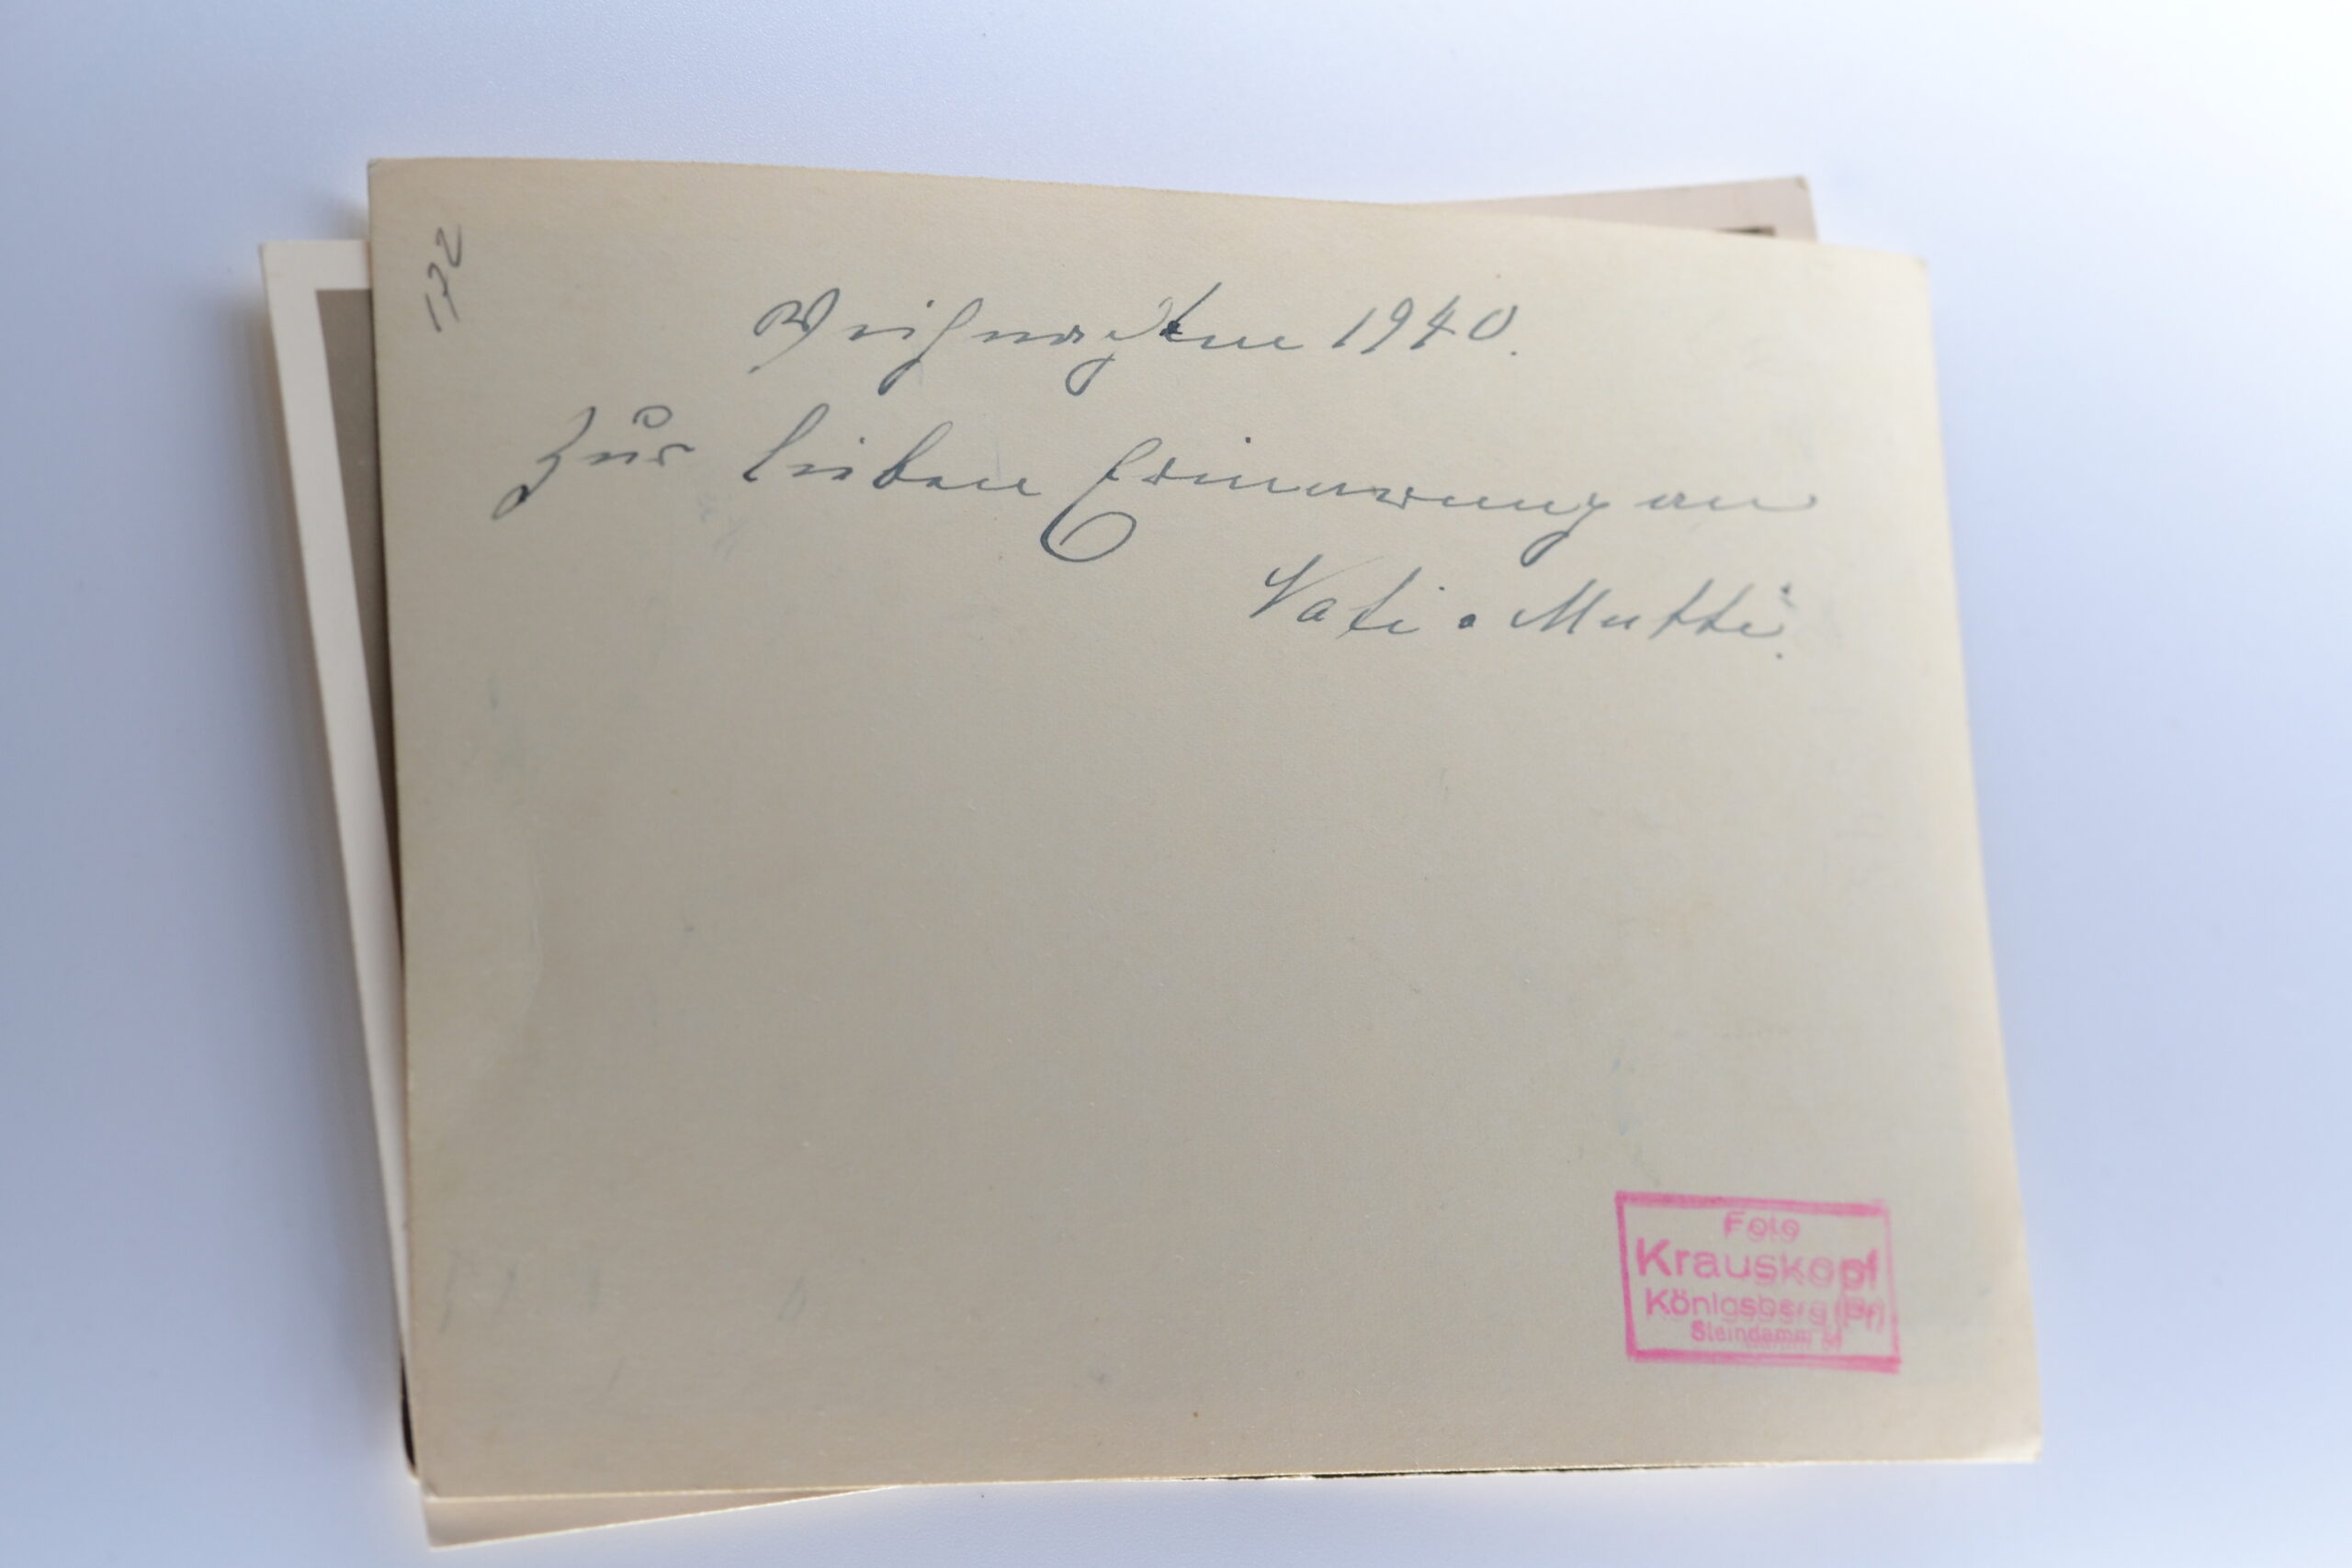 172
Weihnachten 1940.
Zur lieben Erinnerung an
Vati • Mutti.
Foto
Krauskopf
Königsberg (Pr)
Steindamm